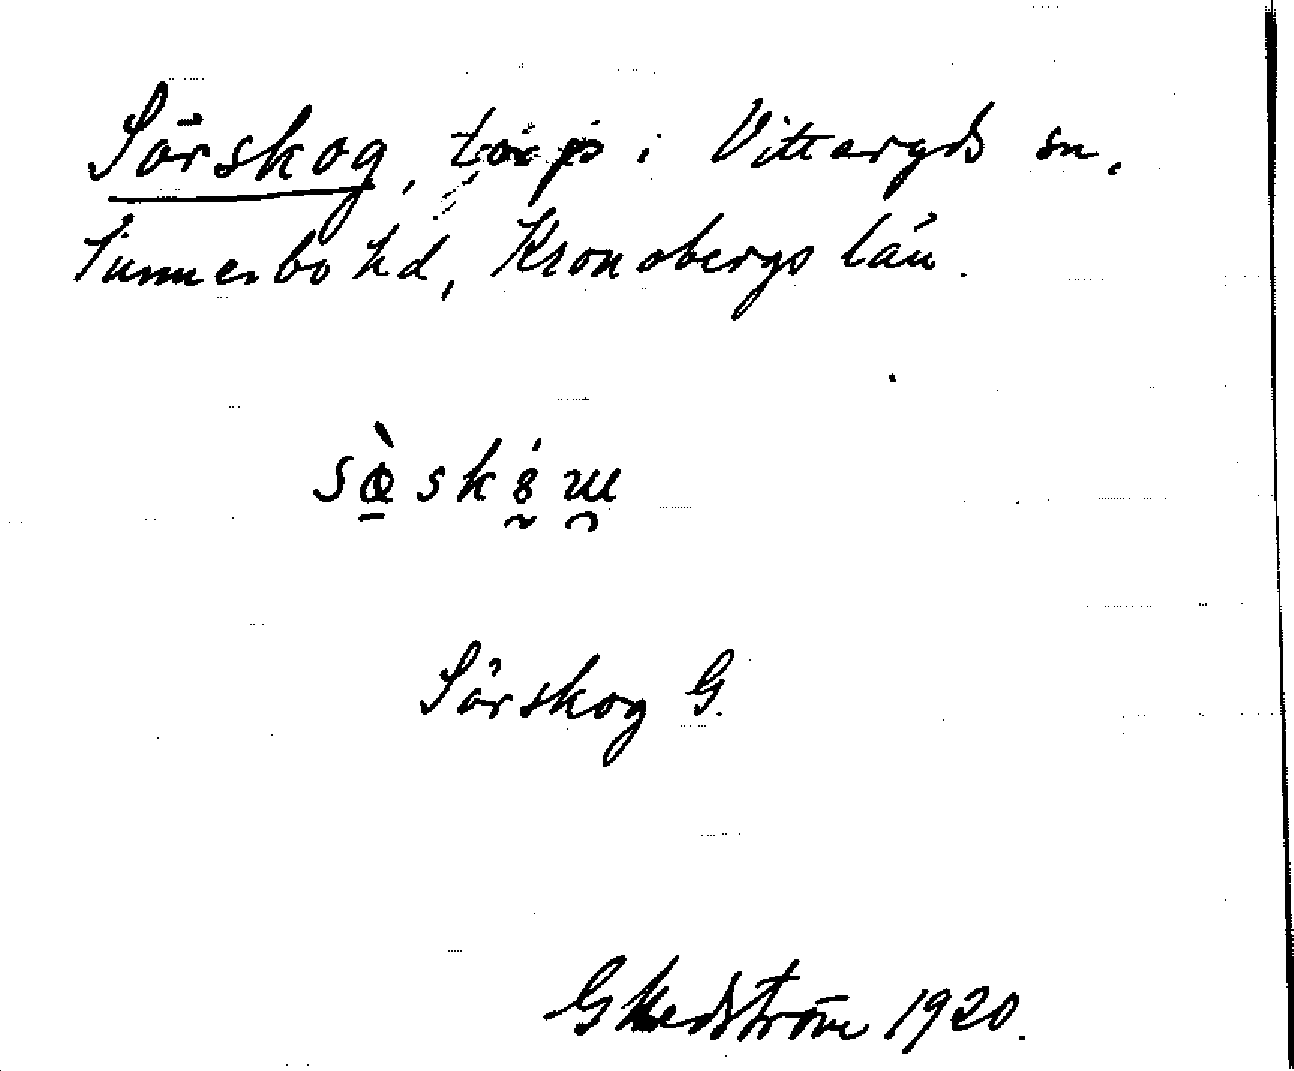 Sörskog, torp i Vittaryds sn.
Sunnerbo hd, Kronobergs län.
Sörskog G.
G Hedström 1920.